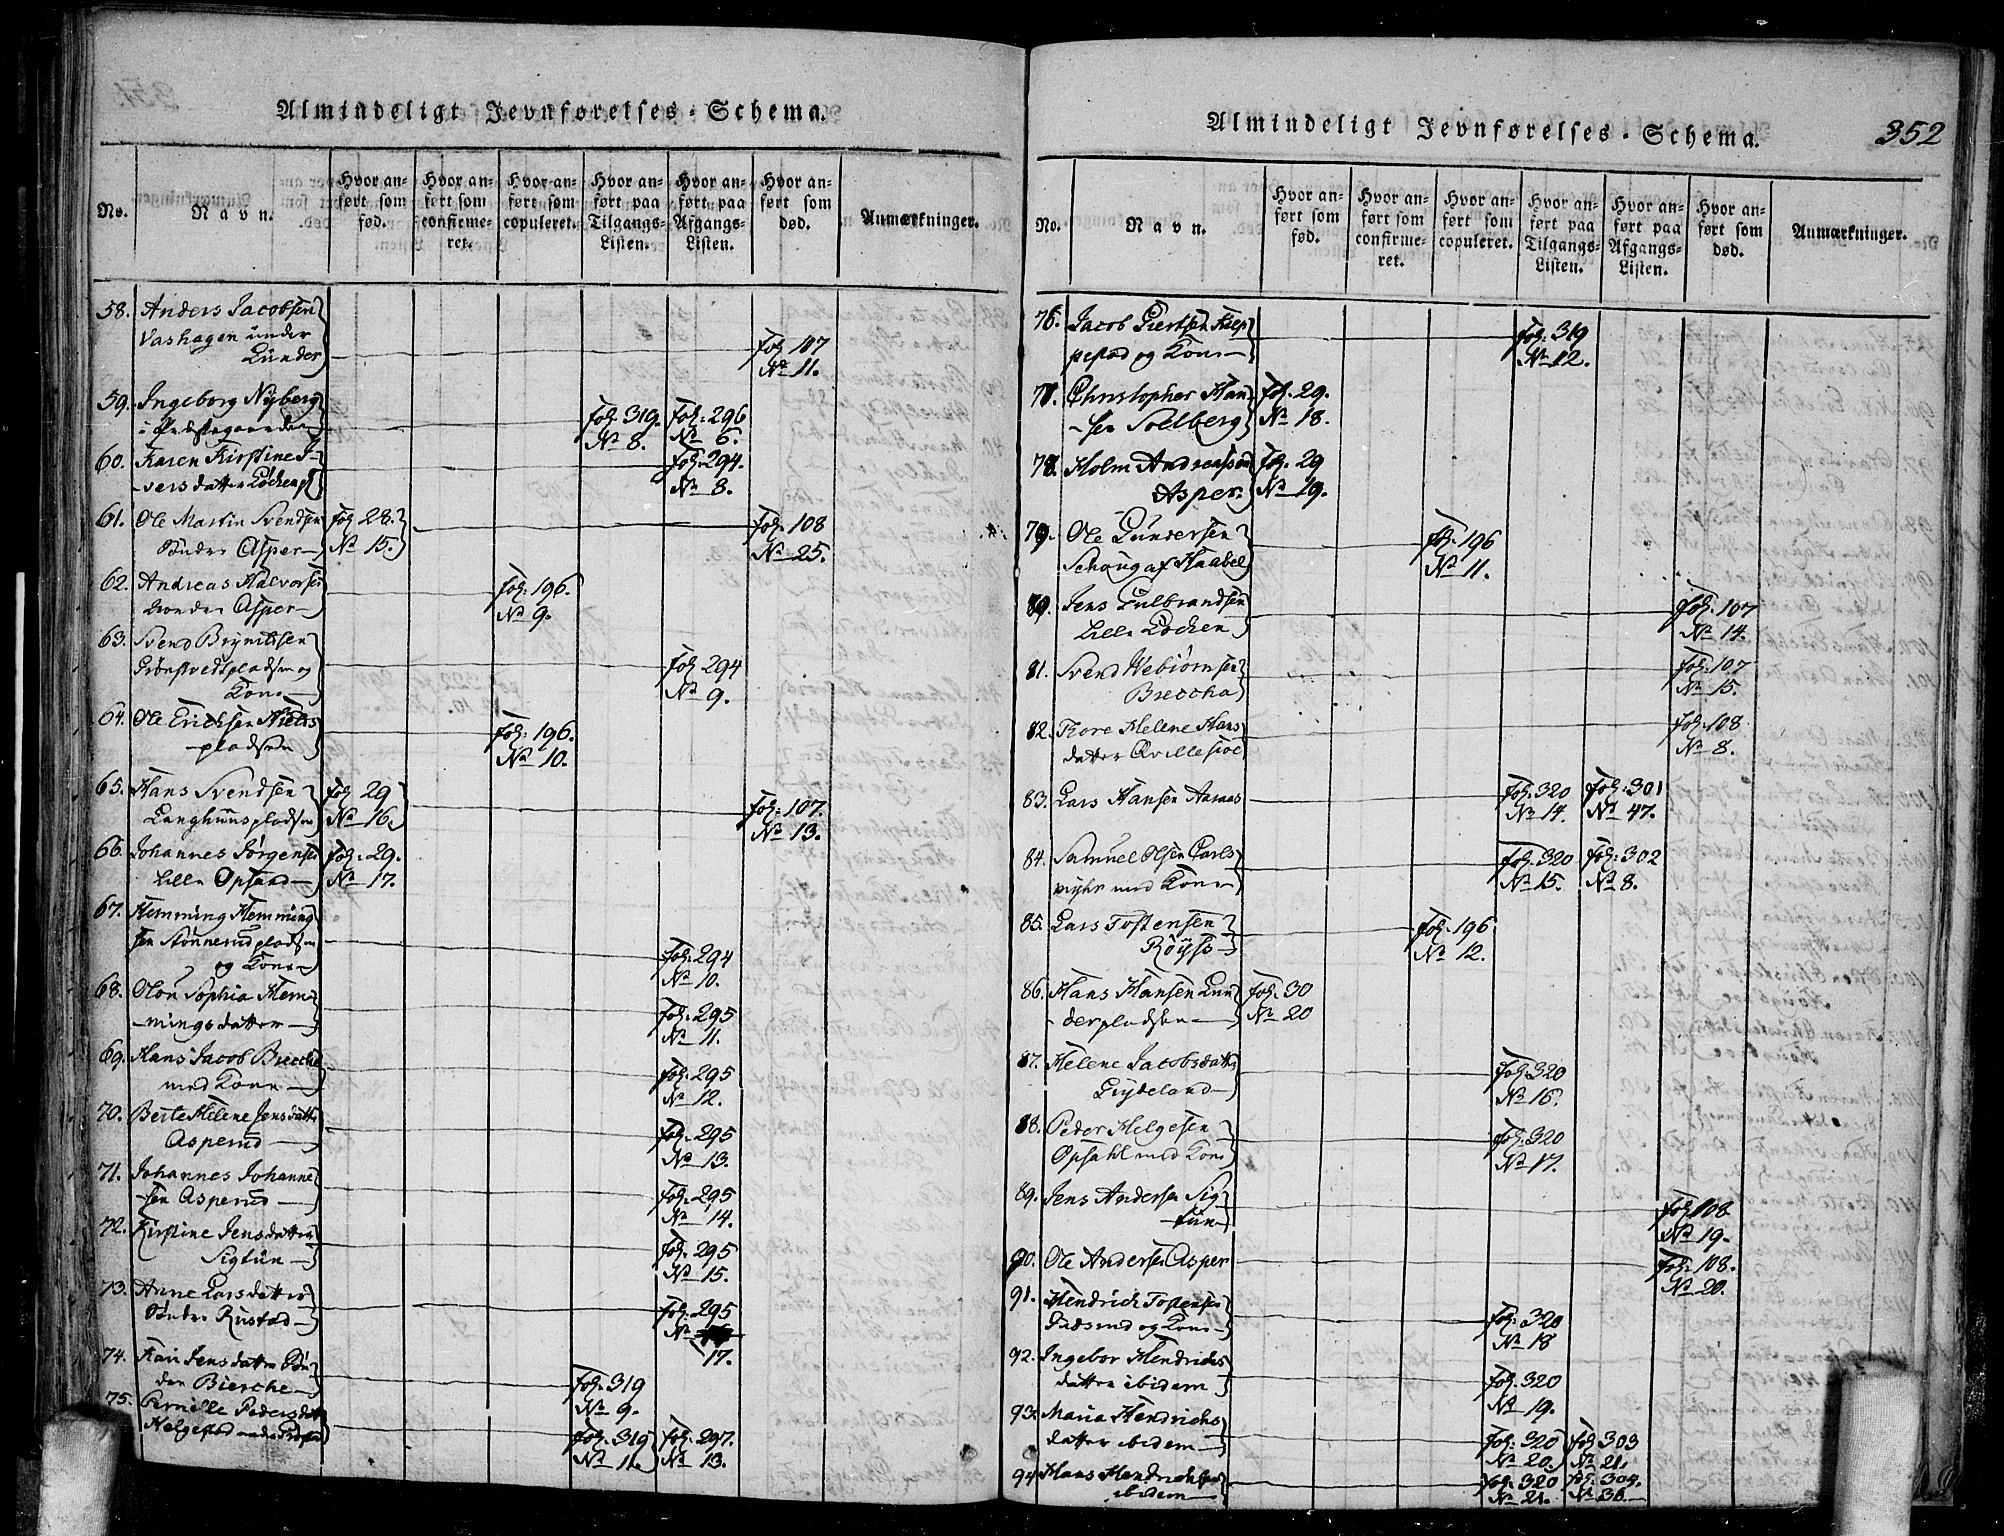 Almindeligt Jevnførelses-Schema.
No.
Navn.
Hvor an-
ført som
fød.
Hvor an-
ført som
confirme-
ret.
Hvor an-
ført som
copuleret.
Hvor an-
ført paa
Tilgangs-
Listen.
Hvor an-
ført paa
Afgangs-
Listen.
Hvor an-
ført som
død.
Anmærkninger.
58. Anders Jacobsen
Vashagen under
Lunder
fol. 107
No 11.
59. Ingeborg Nyberg
i Præstegaarden
fol: 319. fol: 296
No 8. No 6.
60. Karen Kirstine I-
versdatter
fol: 294.
No 8.
61. Ole Martin Svendsen fol: 28. fol. 108
Søndre Asper No 15. No 25.
62. Andreas Halvorsen
Asper
fol: 196.
No 9.
63. Svend Bryniltsen
pladsen og
Kone
fol: 294
No 9.
64. Ole Ericksen
pladsen
fol: 196.
No 10.
65. Hans Svendsen fol: 29 fol: 107.
pladsen No 16. No 13.
66. Johannes Jørgensen fol: 29.
Lille Opsand No 17.
67. Hemming Hemming
sen Tønnerudpladsen
og Kone
fol: 294
No 10.
68. Olou Sophia Hem-
mingsdatter
fol: 295
No 11.
69. Hans Jacob
med Kone
fol: 295
No 12.
70. Berte Helene Jensdatter
Asperud
fol: 295
No 13.
71. Johannes Johanne
sen Asperud
fol: 295
No 14.
72. Kirstine Jensdatter
Sigtun
fol: 295
No 15.
73. Anne Larsdatter
Søndre Rustad
fol: 295
No 17.
74. Kari Jensdatter Søn-
dre Bierche
fol: 319
No 9.
75. Pernille Pedersdatter
Helgestad
fol: 319 fol: 297.
No 11. No 13.
Almindeligt Jevnførelses-Schema.
352
No.
Navn.
Hvor an-
ført som
fød.
Hvor an-
ført som
confirme-
ret.
Hvor an-
ført som
copuleret.
Hvor an-
ført paa
Tilgangs-
Listen.
Hvor an-
ført paa
Afgangs-
Listen.
Hvor an-
ført som
død.
Anmærkninger.
76. Jacob Giertsen
og Kone
fol: 319
No 12.
77. Christopher Han fol: 29.
sen Solberg No 18.
78. Holm Andreassen fol: 29
Asper. No 19.
79. Ole Gundersen
Schoug af Haabel
fol: 196
No 11.
80. Jens Gulbrandsen
Lille Løcken
fol: 107
No 14.
81. Svend Webiørnsen
fol: 107
No 15.
82. Tore Helene Hans
datter
fol: 108
No 8.
83. Lars Hansen Aaraas
fol: 320 fol: 301
No 14. No 47.
84. Samuel Olsen Carls
med Kone
fol: 320 fol: 302
No 15. No 8.
85. Lars Tostensen
fol: 196
No 12.
86. Hans Hansen Lun fol: 30
derpladsen No 20
87. Helene Jacobsdatter
fol: 320
No 16.
88. Peder Helgesen
Opsahl med Kone
fol: 320
No 17.
89. Jens Andersen Sig
tun
fol: 108
No 19.
90. Ole Andersen Asper
fol: 108.
No 20.
91. Hendrich Tostensen
og Kone
fol: 320
No 18
92. Ingebor Hendrichs
datter ibidem
fol: 320
No 19.
93. Maria Hendrichs
datter ibidem
fol: 320 fol: 303
No 20. No 21.
94 Hans Hendrichsen
ibidem
fol: 320 fol: 304.
No 21. No 36.